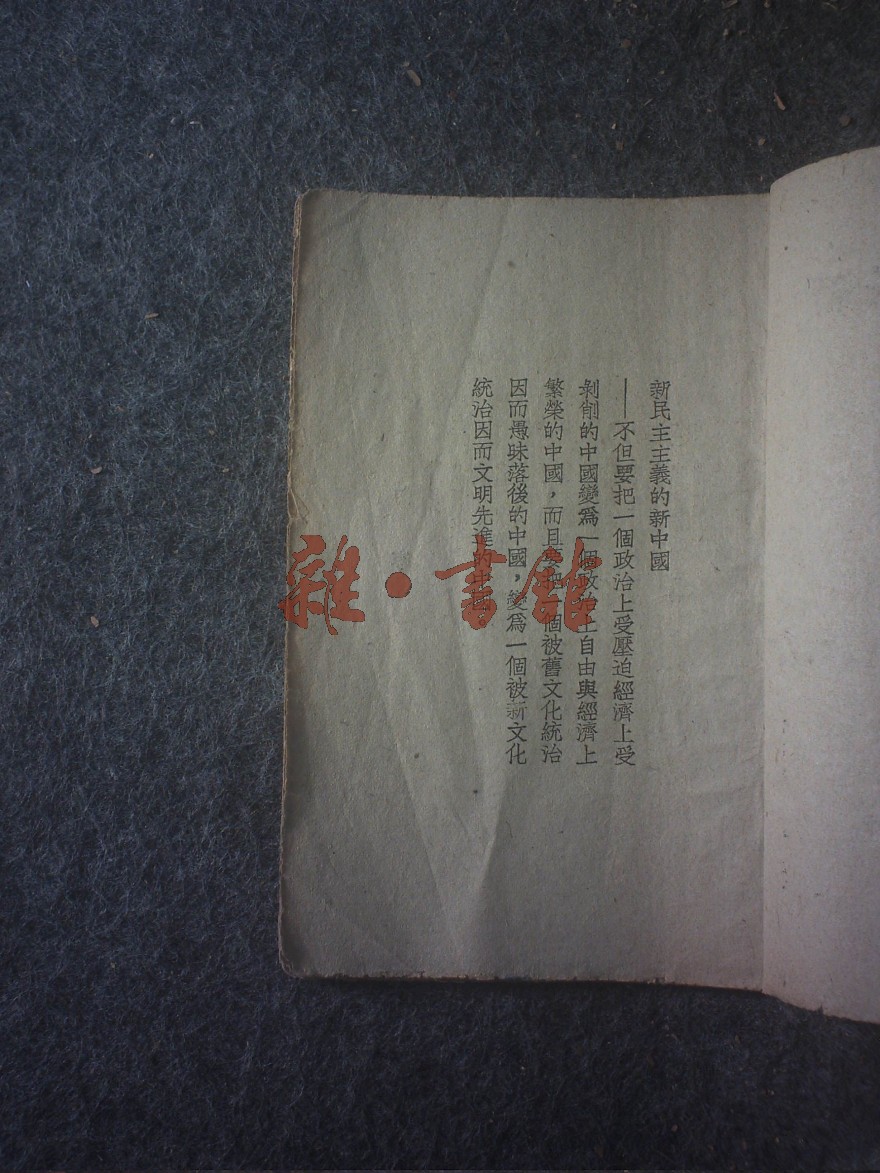 新民主主義的新中國
——不但要把一個政治上受壓迫經濟上受
剝削的中國變爲一個政治上自由與經濟上
繁榮的中國，而且要把一個被舊文化統治
因而愚昧落後的中國，變爲一個被新文化
統治因而文明先進的中國
雜·書館